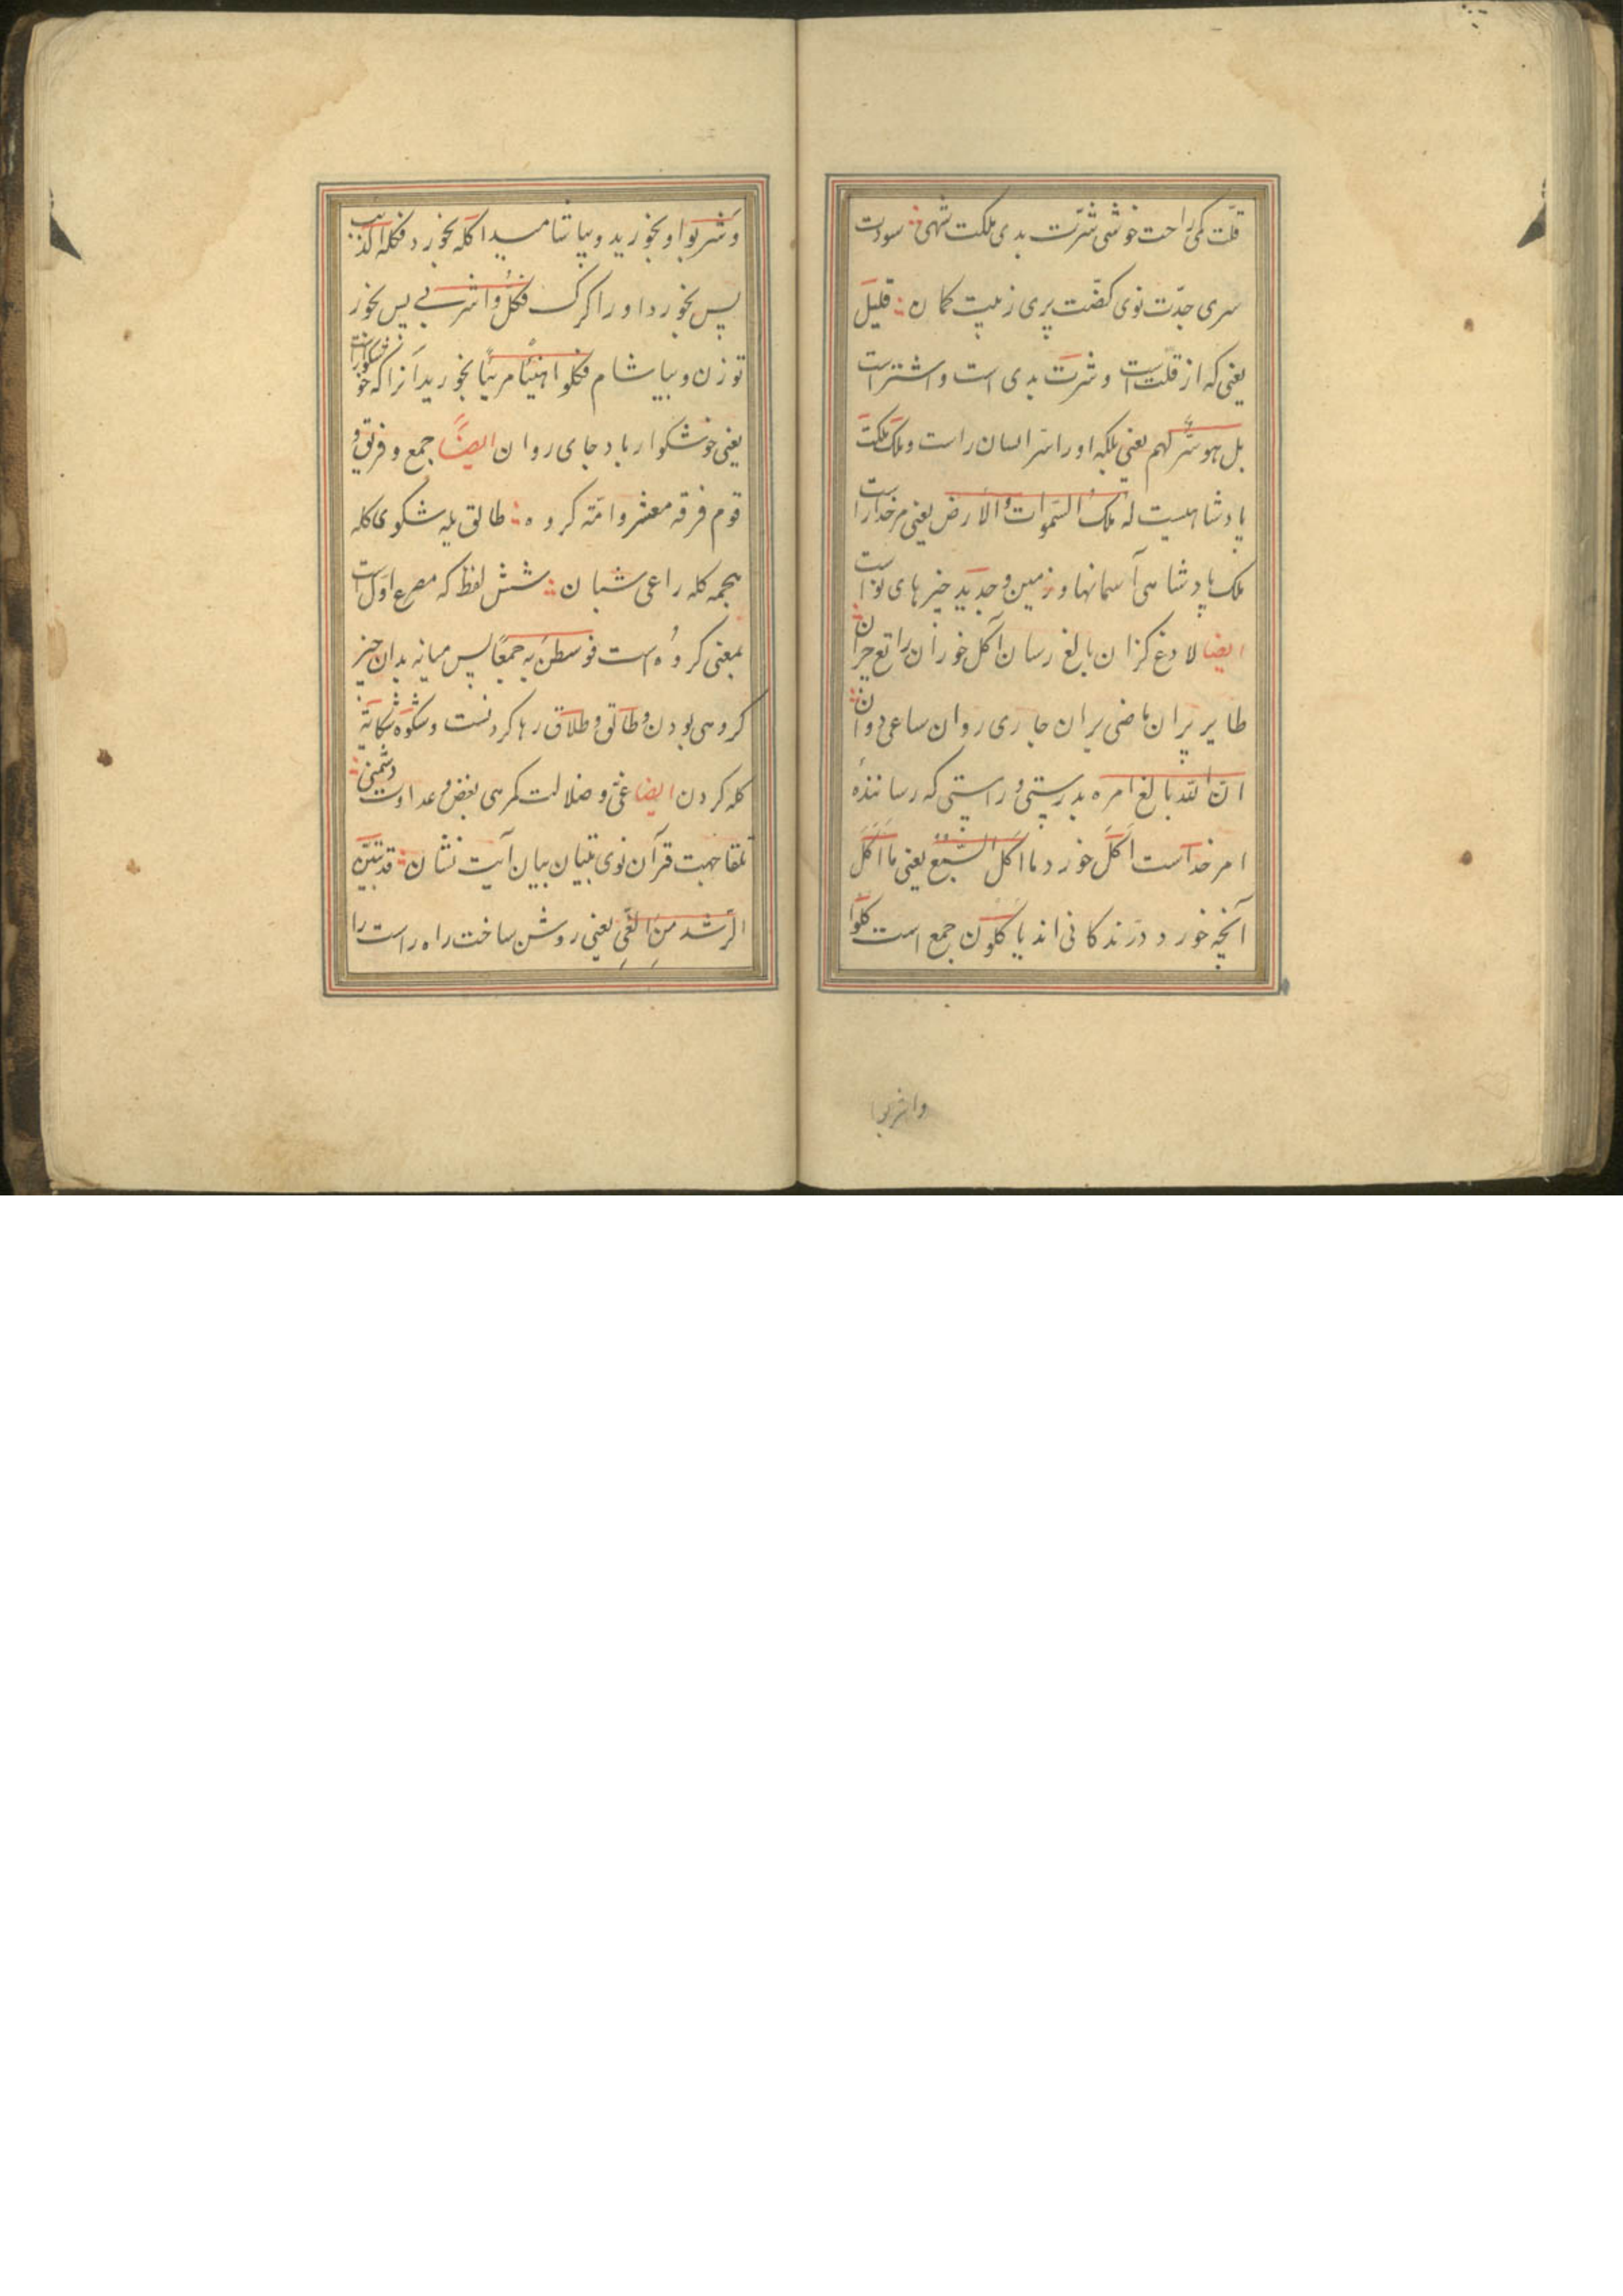 قلّت کمی راحت خوشی شرّت بدی ملکت شهی سودت
سری جدّت نوی کضّت پری زمیت کمان قلیل
یعنی که از قلّت است و شرّت بدی است و اشتر است
بل هو شرّ لهم یعنی بلکه او را شر ایسان راست و ملک ملکت
پادشاهیست له ملک السّموات والارض یعنی مر خدا راست
ملک پادشاهی آسمانها و زمین و جدید چیزهای نو است
ایضا لادغ کزان بالغ رسان آکل خوران راتع چران
طایر پران ماضی بران جاری روان ساعی دوان
انّ الله بالغ امره بدرستی و راستی که رسانندهٔ
امر خداست اکل خورد ما اکل السّبع یعنی ما اکل
آنچه خورد درّندکانی اند یاکلون جمع است کلوا
واشربوا
وشربوا و بخورید و بیاشامید اکله بخورد فاکله الذئب
پس بخورد او را کرک فکلی واشربی پس بخور
تو زن و بیاشام فکلوا هنیئا مریئا بخورید آنرا که خوشکوار است
یعنی خوشکوار باد جای روان ایضاً جمع و فریق و
قوم فرقه معشر و امّه کروه طالق یله شکوی کله
هجمه کله راعی شبان شش لفظ که مصرع اوّل است
بمعنی کروه است فوسطن به جمعاً پس میانه بدان چیز
کروهی بودن و طالق و طلاق رها کردنست و شکوه شکایة
کله کردن ایضا غیّ و ضلالت کمرهی بغض و عداوت دشمنی
تلقا جهت قرآن نوی تبیان بیان آیت نشان قد تبیّن
الرّشد من الغیّ یعنی روشن ساخت راه راست را